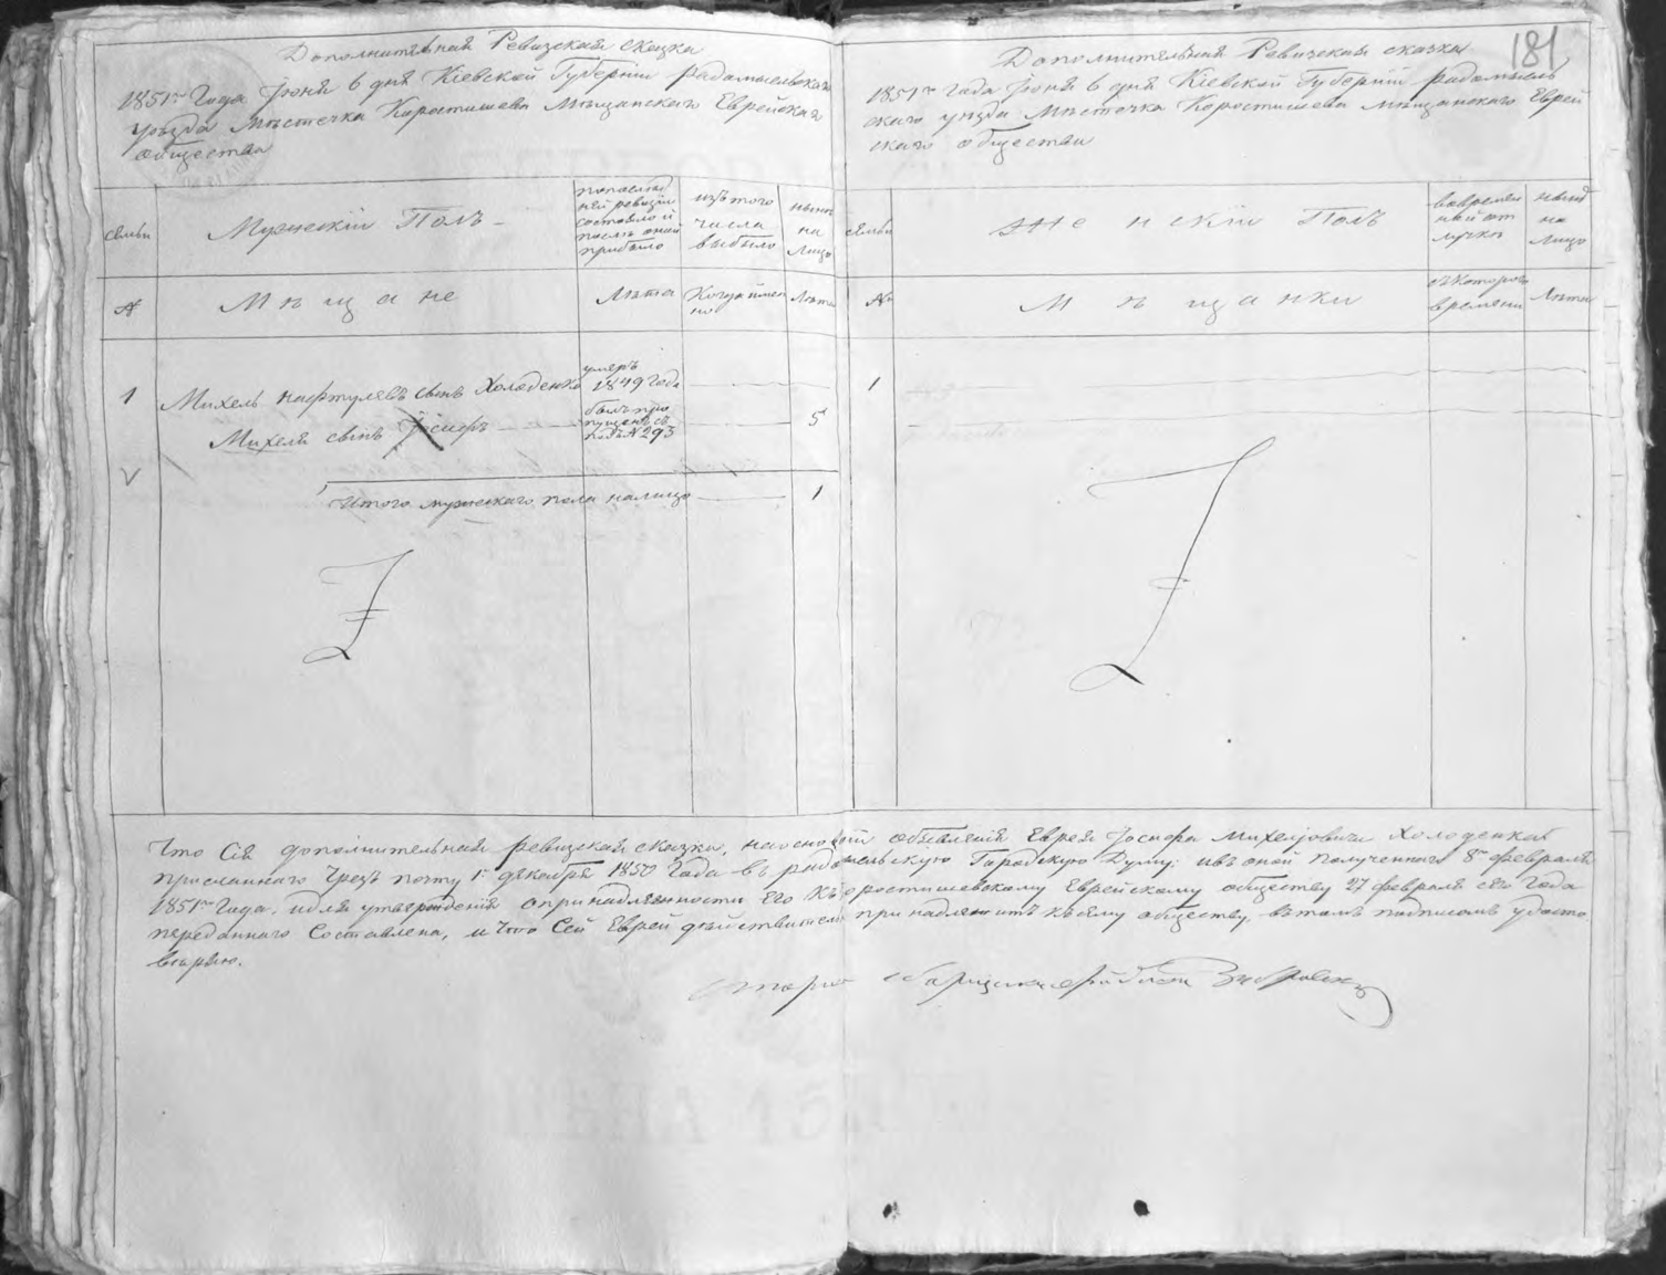 Дополнительная Ревизская сказка
1851го Года Іюня 6 дня Кіевской Губерніи Радомысльскаго
уѣзда Мѣстечка Коростишева Мѣщанскаго Еврейскаго
общества
семьи
Мужескій Полъ
по послѣд
ней ревизіи
состояло и
послѣ оной
прибыло
изъ того
числа
выбыло
нынѣ
на
лицо
№
Мѣщане
Лѣта
Когда имен
но
Лѣта
1
Михель Нафтулевъ сынъ Холоденко
умеръ
1849 года
Михеля сынъ Іосифъ
былъ про
пущенъ съ
подъ № 293
5
Итого мужескаго пола налицо
1
181
Дополнительная Ревизская сказка
1851го Года Іюня 6 дня Кіевской Губерніи Радомысль
скаго уѣзда Мѣстечка Коростишева Мѣщанскаго Еврей
скаго общества
семьи
Женскій Полъ
во времен
ной от
лучкѣ
нынѣ
на
лицо
№
Мѣщанки
съ котораго
времени
Лѣта
1
Что Сія дополнительная ревизская сказка, на основаніи объявленія Еврея Іосифа Михелjовича Холоденка
присланнаго чрезъ почту 1го декабря 1850 Года въ радомысльскую Городскую Думу; изъ оной полученнаго 8го февраля
1851го Года, и для утвержденія о принадлежности Его Къ Коростишевскому Еврейскому обществу 27 февраля сего Года
переданнаго Составлена, и что Сей Еврей дѣйствительно принадлежитъ къ сему обществу, въ томъ подписомъ удосто
вѣряю.